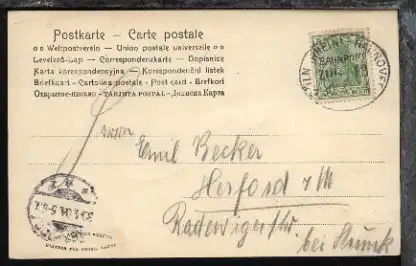 Postkarte - Carte postale
Weltpostverein - Union postale universelle
Levelező-Lap - Correspondenzkarte - Dopisnice
Karta korespondencyjna - Korespondenční lístek
Briefkaart - Cartolina postale - Post card - Brefkort
Открытое письмо - TARJETA POSTAL - Дописна Карта
BAHNPOST
Herrn
Emil Becker
Herford i/W
Radewigerstr
bei Brunk